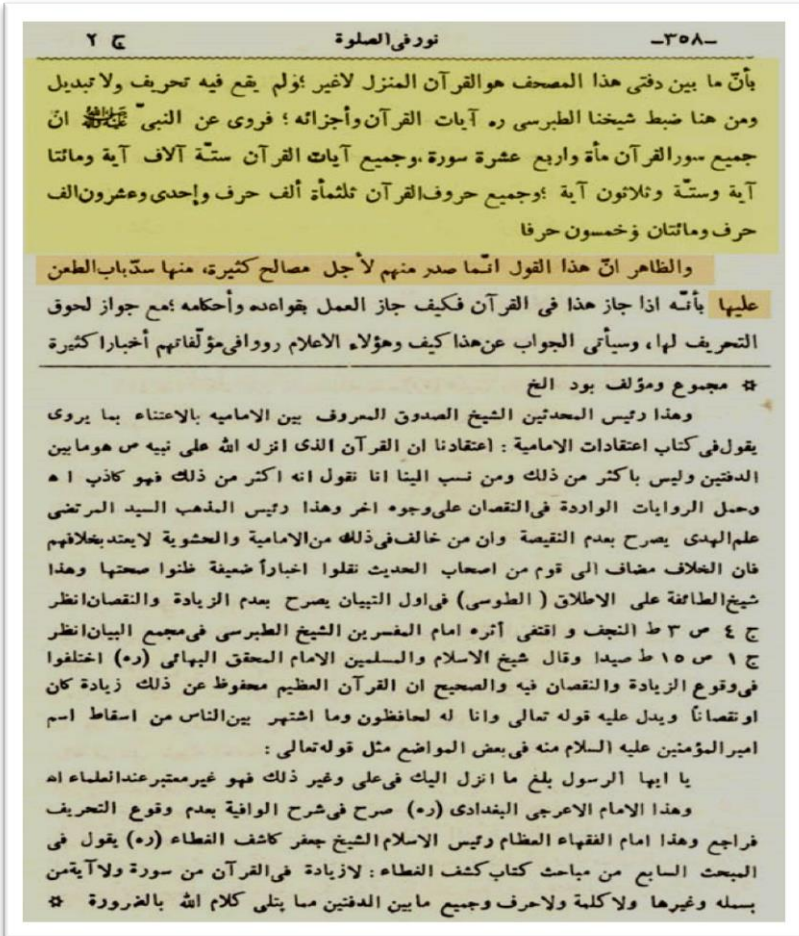 -٣٥٨- نور فى الصلوة ج ٢
بأنّ ما بين دفتى هذا المصحف هو القرآن المنزل لاغير ؛ ولم يقع فيه تحريف ولا تبديل
ومن هنا ضبط شيخنا الطبرسى ره آيات القرآن وأجزائه ؛ فروى عن النبىّ ﷺ انّ
جميع سور القرآن مأة واربع عشرة سورة ، وجميع آيات القرآن ستّة آلاف آية ومائتا
آية وستّة وثلاثون آية ؛ وجميع حروف القرآن ثلثمأة ألف حرف وإحدى وعشرون الف
حرف ومائتان وخمسون حرفا
والظاهر انّ هذا القول انّما صدر منهم لأجل مصالح كثيرة، منها سدّ باب الطعن
عليها بأنّه اذا جاز هذا فى القرآن فكيف جاز العمل بقواعده وأحكامه ؛ مع جواز لحوق
التحريف لها، وسيأتى الجواب عن هذا كيف وهؤلاء الاعلام رووا فى مؤلّفاتهم أخبارا كثيرة
✡ مجموع ومؤلف بود الخ
وهذا رئيس المحدثين الشيخ الصدوق المعروف بين الاماميه بالاعتناء بما يروى
يقول فى كتاب اعتقادات الامامية : اعتقادنا ان القرآن الذى انزله الله على نبيه ص هو مابين
الدفتين وليس باكثر من ذلك ومن نسب الينا انا نقول انه اكثر من ذلك فهو كاذب ا ه
وحمل الروايات الواردة فى النقصان على وجوه اخر وهذا رئيس المذهب السيد المرتضى
علم الهدى يصرح بعدم النقيصة وان من خالف فى ذلك من الامامية والحشوية لا يعتد بخلافهم
فان الخلاف مضاف الى قوم من اصحاب الحديث نقلوا اخباراً ضعيفة ظنوا صحتها وهذا
شيخ الطائفة على الاطلاق ( الطوسى ) فى اول التبيان يصرح بعدم الزيادة والنقصان انظر
ج ٤ ص ٣ ط النجف و اقتفى أثره امام المفسرين الشيخ الطبرسى فى مجمع البيان انظر
ج ١ ص ١٥ ط صيدا وقال شيخ الاسلام والمسلمين الامام المحقق البهائى (ره) اختلفوا
فى وقوع الزيادة والنقصان فيه والصحيح ان القرآن العظيم محفوظ عن ذلك زيادة كان
او نقصاناً ويدل عليه قوله تعالى وانا له لحافظون وما اشتهر بين الناس من اسقاط اسم
امير المؤمنين عليه السلام منه فى بعض المواضع مثل قوله تعالى :
يا ايها الرسول بلغ ما انزل اليك فى على وغير ذلك فهو غير معتبر عند العلماء اه
وهذا الامام الاعرجى البغدادى (ره) صرح فى شرح الوافية بعدم وقوع التحريف
فراجع وهذا امام الفقهاء العظام رئيس الاسلام الشيخ جعفر كاشف الغطاء (ره) يقول فى
المبحث السابع من مباحث كتاب كشف الغطاء : لا زيادة فى القرآن من سورة ولا آية من
بسمله وغيرها ولا كلمة ولا حرف وجميع مابين الدفتين مما يتلى كلام الله بالضرورة ✡